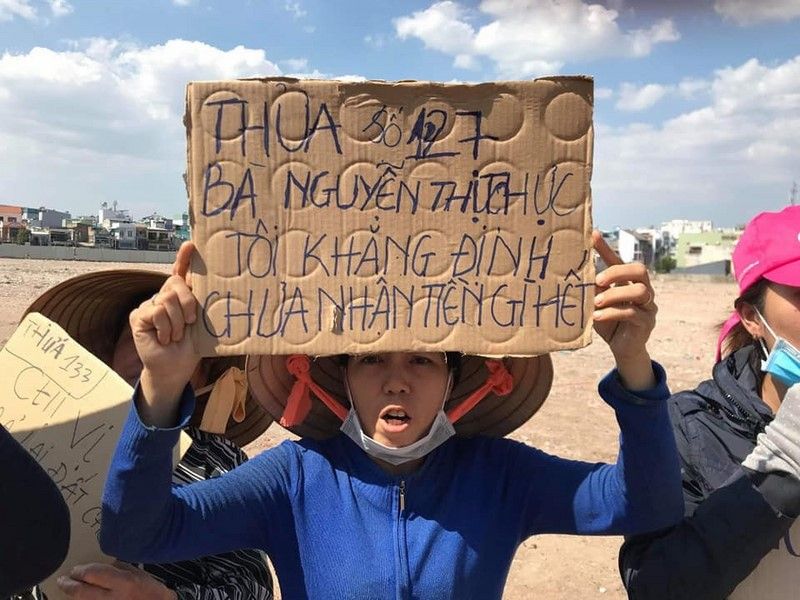 THỬA SỐ 127
BÀ NGUYỄN THỊ THỤC
TÔI KHẲNG ĐỊNH
CHƯA NHẬN TIỀN GÌ HẾT
THỬA 133
CHỊ VI
ĐẤT